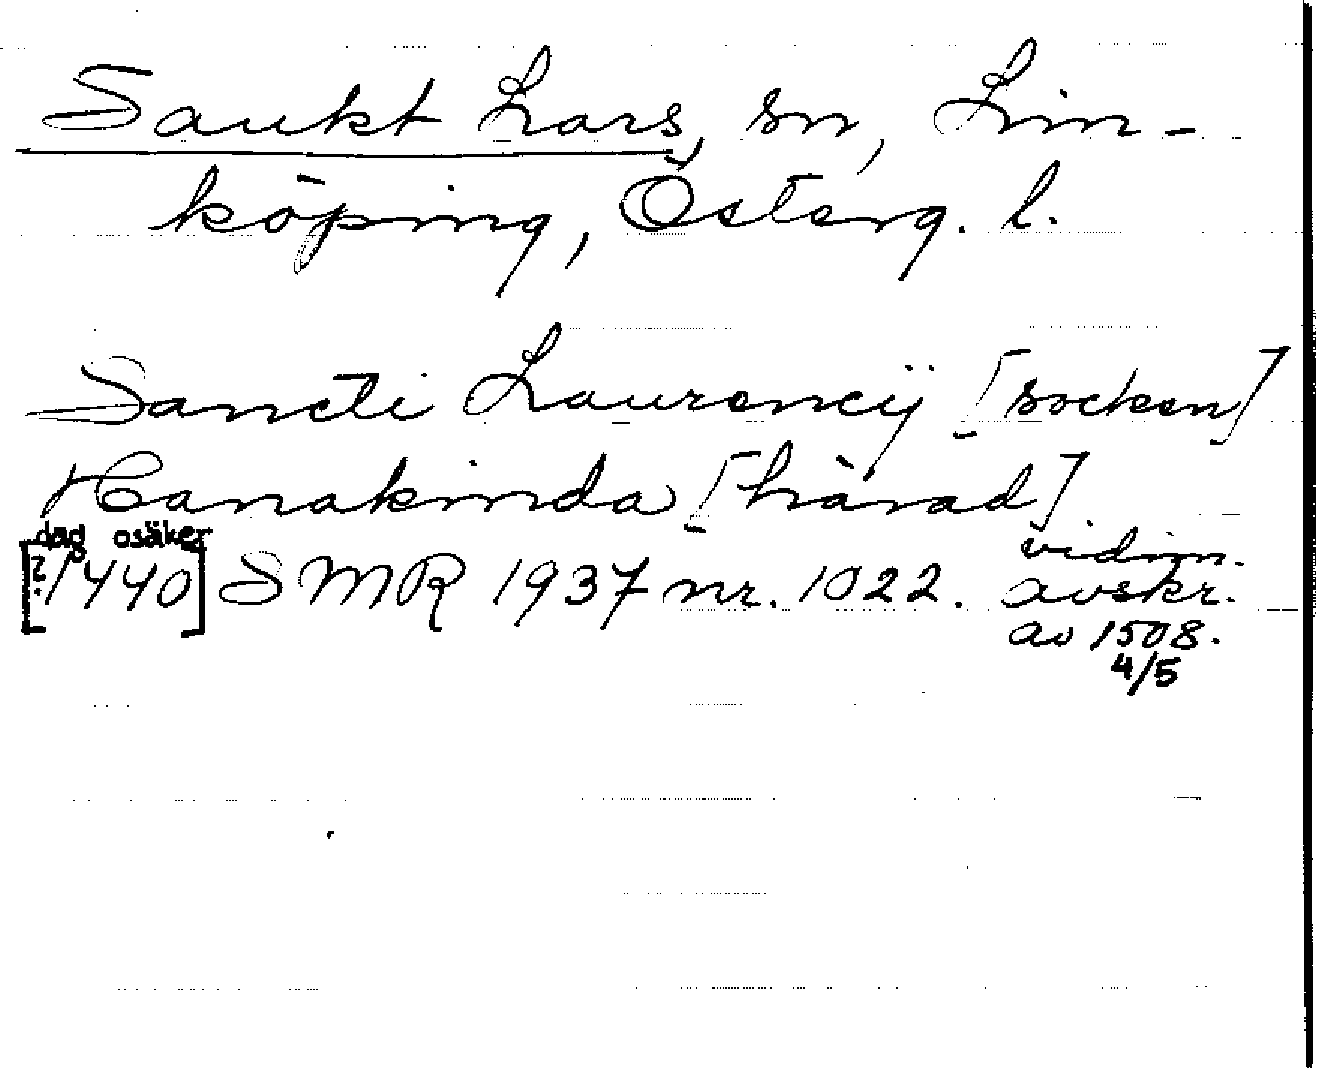 Sankt Lars, sn, Lin-
köping, Österg. l.
Sancti Laurencij [socken]
Hanakinda [härad]
dag osäker
[?1440] SMR 1937 nr. 1022. vidim.
avskr.
av 1508.
4/5